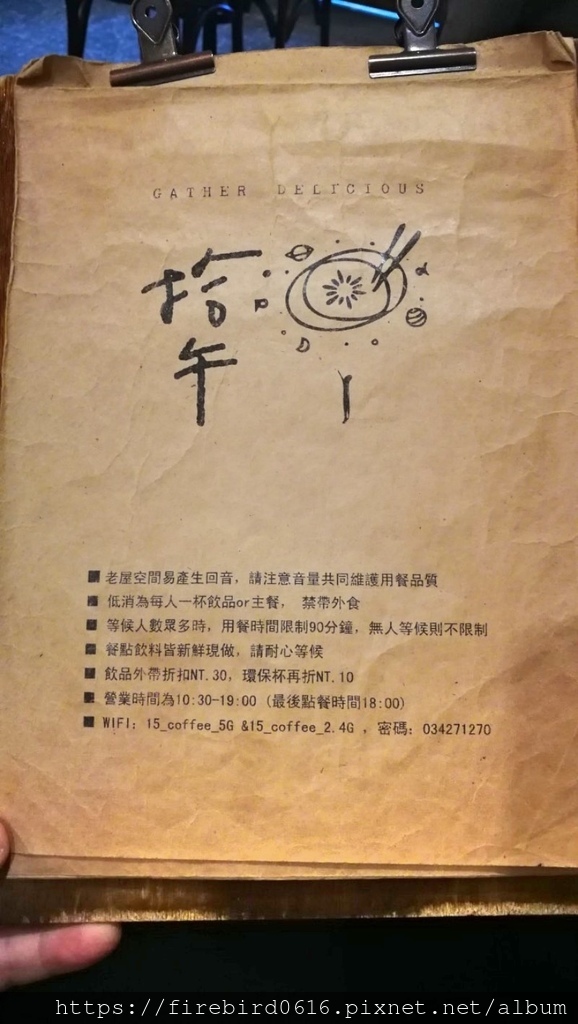 GATHER DELICIOUS
拾
午
老屋空間易產生回音，請注意音量共同維護用餐品質
低消為每人一杯飲品or主餐， 禁帶外食
等候人數眾多時，用餐時間限制90分鐘，無人等候則不限制
餐點飲料皆新鮮現做，請耐心等候
飲品外帶折扣NT.30，環保杯再折NT.10
營業時間為10:30-19:00 (最後點餐時間18:00)
WIFI：15_coffee_5G &15_coffee_2.4G ，密碼：034271270
https://firebird0616.pixnet.net/album